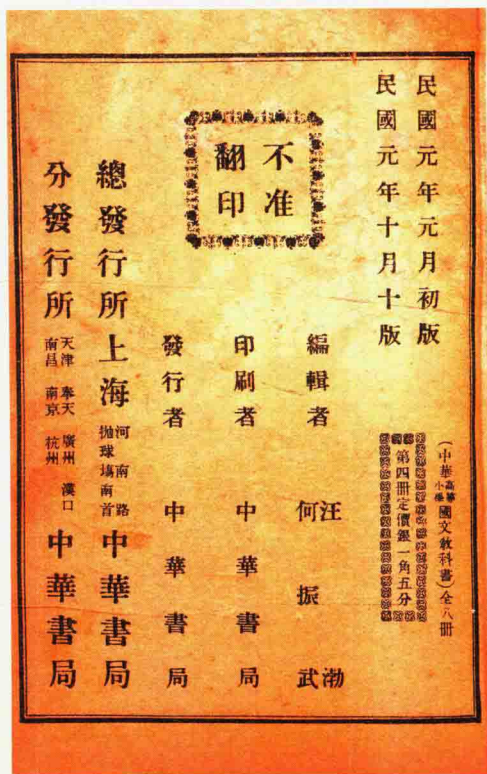 民國元年元月初版
民國元年十月十版
（中華高等小學國文教科書）全八冊
第四冊定價銀一角五分
不准
翻印
編輯者 汪渤
何振武
印刷者 中華書局
發行者 中華書局
總發行所 上海 河南路
拋球場南首 中華書局
分發行所 天津 奉天 廣州 漢口
南昌 南京 杭州 中華書局